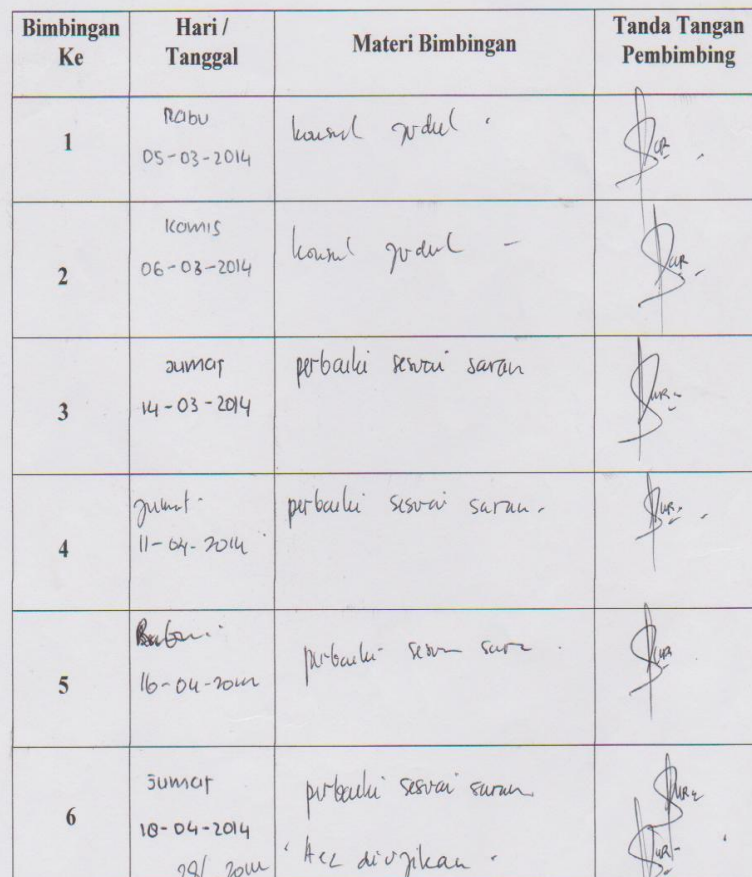 Bimbingan Ke
Hari / Tanggal
Materi Bimbingan
Tanda Tangan Pembimbing
1
Rabu
05-03-2014
konsul judul
2
Kamis
06-03-2014
konsul judul -
3
Jumat
14-03-2014
perbaiki sesuai saran
4
Jumat
11-04-2014
perbaiki sesuai saran.
5
16-04-2014
perbaiki sesuai saran
6
Jumat
18-04-2014
perbaiki sesuai saran
28/ 2014
Acc diujikan.